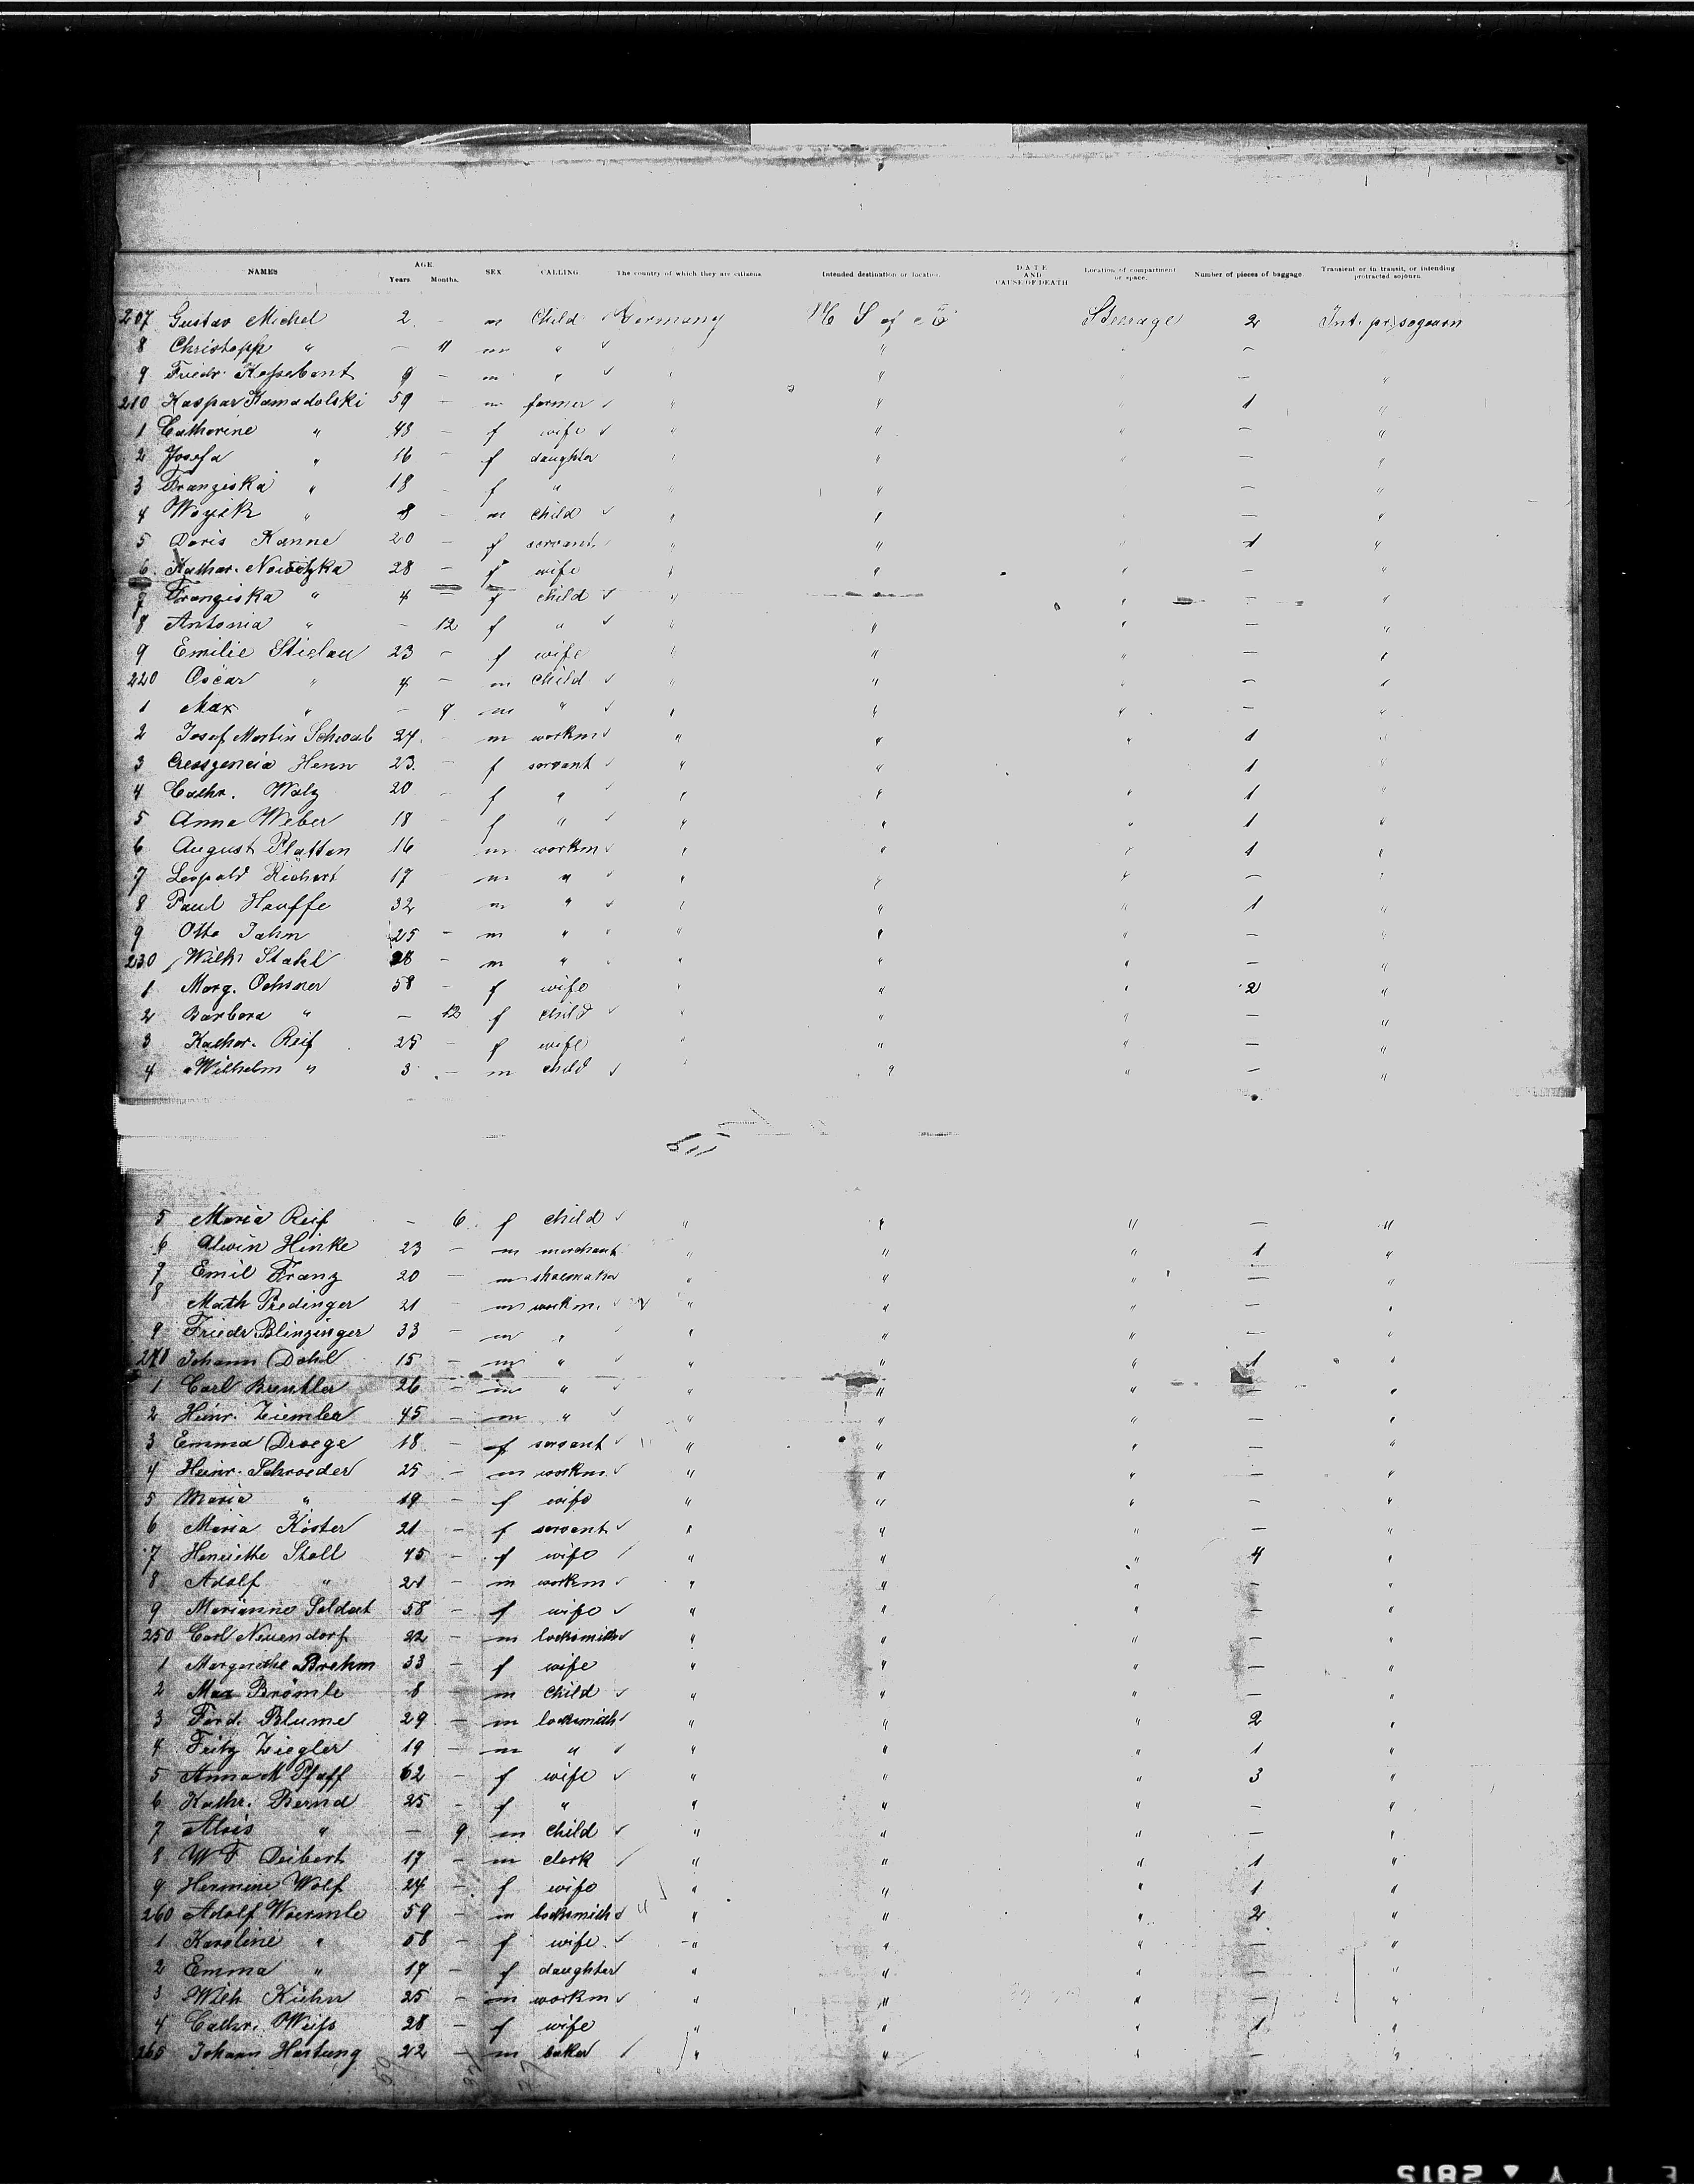 NAMES AGE Years. Months. SEX CALLING The country of which they are citizens. Intended destination or location. DATE AND CAUSE OF DEATH Location of compartment or space. Number of pieces of baggage. Transient or in transit, or intending protracted sojourn.
207 Gustav Michel 2 - m Child Germany Steerage 2 Int. pr. sogourn
8 Christoph " - 11 m " " -
9 Friedr. 9 - m " " - "
210 Kaspar Kamadolski 59 - m farmer " " " 1 "
1 Catharine " 43 - f wife " " " - "
2 Josefa " 16 - f daughter " " " - "
3 Franziska " 18 - f " " " - "
4 Woyzik " 8 - m child " " - "
5 Doris Kanne 20 - f servant " " " 1 "
6 Kathar. Nowitzka 28 - f wife " " " - "
7 Franziska " 4 - f child " " " - "
8 Antonia " - 12 f " " " - "
9 Emilie Stielau 23 - f wife " " " - "
220 Oscar " 4 - m child " " " - "
1 Max " - 9 m " " " " - "
2 Josef Martin Schwab 24 - m workm " " " 1 "
3 Henn 23 - f servant " " 1 "
4 Cathr. Walz 20 - f " " " " 1 "
5 Anna Weber 18 - f " " " " 1 "
6 August Platten 16 m workm " " " 1 "
7 Leopold Richert 17 - m " " " " - "
8 Paul Hauffe 32 m " " " " 1 "
9 Otto Jahn 25 - m " " " " - "
230 Wilh. Stahl 28 - m " " " " - "
1 Marg. Ochsner 58 - f wife " " " 2 "
2 Barbara " - 12 f child " " " - "
3 Kathar. Reif 25 - f wife " " " - "
4 Wilhelm " 3 - m child " " " - "
5 Maria Reif - 6 f child " " " - "
6 Alwin Hinke 23 - m merchant " " " 1 "
7 Emil Franz 20 - m shoemaker " " " - "
8 Math Predinger 21 - m workm. " " " - "
9 Friedr Blinzinger 33 - m " " " " - "
240 Johann Dahl 15 - m " " " " 1 "
1 Carl Brentler 26 - m " " " " - "
2 Heinr. Ziemler 45 - m " " " " - "
3 Emma Droege 18 - f servant " " " - "
4 Heinr. Schroeder 25 - m workm. " " " - "
5 Maria " 19 - f wife " " " - "
6 Maria Köster 21 - f servant " " " - "
7 Henriette Stoll 45 - f wife " " " 4 "
8 Adolf " 21 - m workm " " " - "
9 Marianne Soldat 58 - f wife " " " - "
250 Carl Neuendorf 22 - m locksmith " " " - "
1 Margarethe Brehm 33 - f wife " " " - "
2 Max Brömle 8 - m child " " " - "
3 Ferd. Blume 29 - m locksmith " " " 2 "
4 Fritz Ziegler 19 - m " " " " 1 "
5 Anna M Pfaff 62 - f wife " " " 3 "
6 Kathr. Bernd 25 - f " " " " - "
7 Alois " - 9 m child " " " - "
8 W F Deibert 17 - m clerk " " " 1 "
9 Hermine Wolf 24 - f wife " " " 1 "
260 Adolf Woermle 59 - m locksmith " " " 2 "
1 Karoline " 58 - f wife " " " - "
2 Emma " 17 - f daughter " " " - "
3 Wilh Kühn 25 - m workm " " " - "
4 Cathr. Weiss 28 - f wife " " " 1 "
265 Johann Hartung 22 - m baker " " " - "